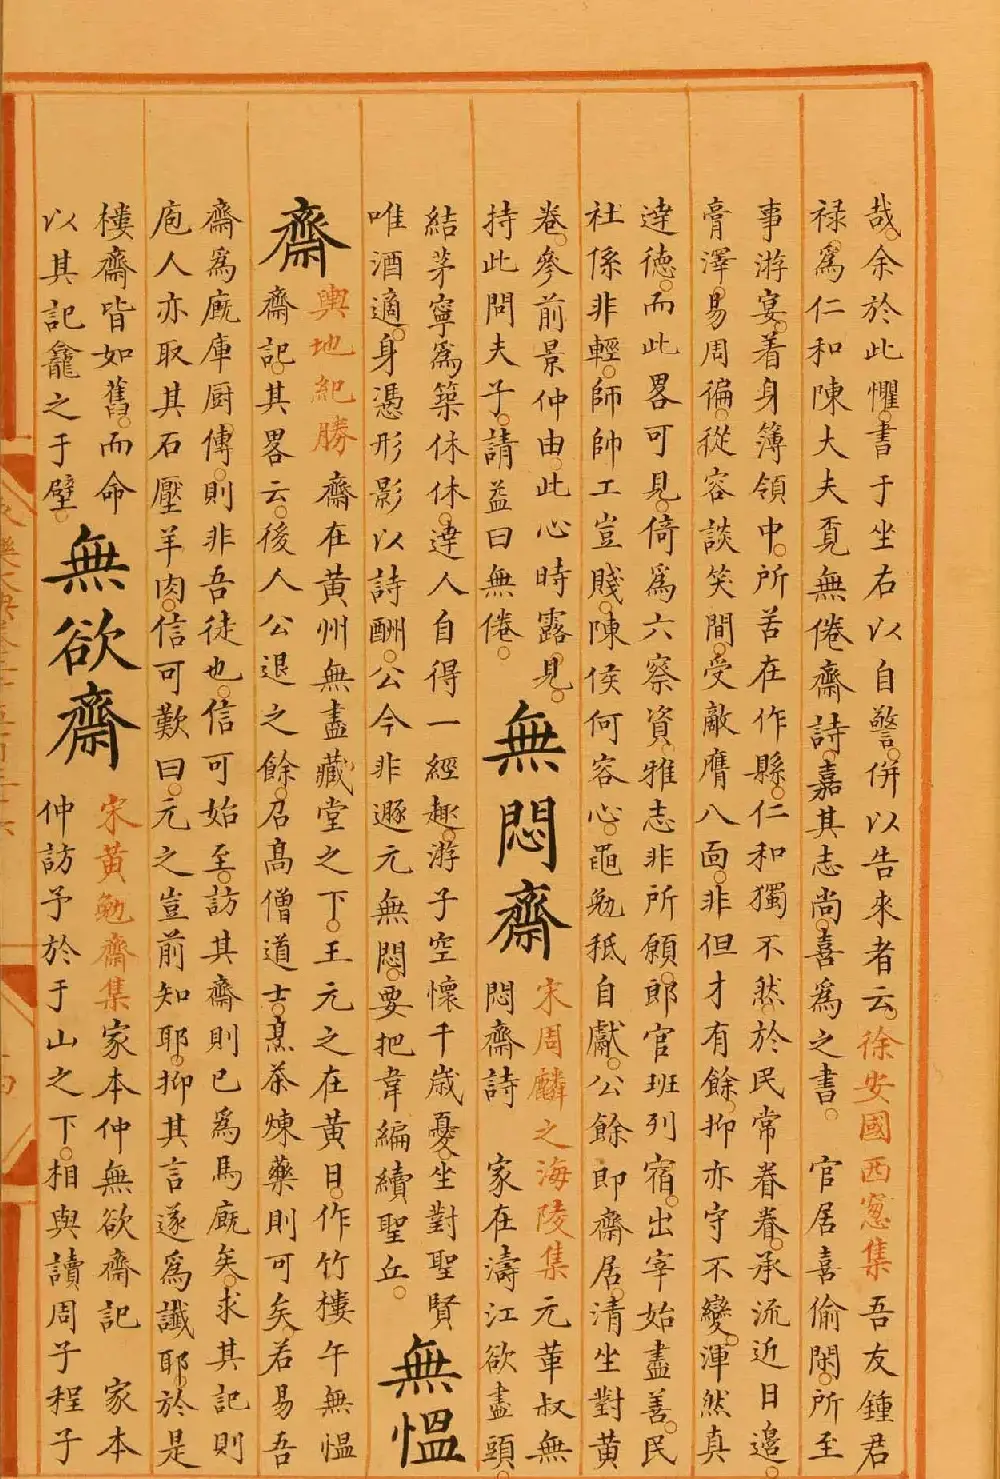 哉。余於此懼。書于坐右以自警。併以告來者云。徐安國西窻集 吾友鍾君
禄。爲仁和陳大夫覔無倦齋詩。嘉其志尚。喜爲之書。 官居喜偷閑。所至
事游宴。着身簿領中。所苦在作縣。仁和獨不然。於民常眷眷。承流近日邉。
膏澤易周徧。從容談笑間。受敵膺八面。非但才有餘。抑亦守不變。渾然真
逹德。而此畧可見。倚爲六察資。雅志非所願。郎官班列宿。出宰始盡善。民
社係非輕。師帥工豈賤。陳侯何容心。黽勉秪自獻。公餘即齋居。清坐對黄
卷。參前景仲由。此心時露見。
持此問夫子。請益曰無倦。
無悶齋
宋周麟之海陵集 元葦叔無
悶齋詩 家在濤江欲盡頭。
結茅寧爲築休休。逹人自得一經趣。游子空懷千歲憂。坐對聖賢
唯酒適。身憑形影以詩酬。公今非遯元無悶。要把韋編續聖丘。
無愠
齋
輿地紀勝 齋在黄州無盡藏堂之下。王元之在黄日。作竹樓午無愠
齋記。其畧云。後人公退之餘。召髙僧道士。烹茶煉藥則可矣。若易吾
齋爲廐庫厨傳。則非吾徒也。信可始至。訪其齋則已爲馬廐矣。求其記則
庖人亦取其石壓羊肉。信可歎曰。元之豈前知耶。抑其言遂爲讖耶。於是
樓齋皆如舊。而命
以其記龕之于壁。
無欲齋
宋黄勉齋集 家本仲無欲齋記 家本
仲訪予於于山之下。相與讀周子程子